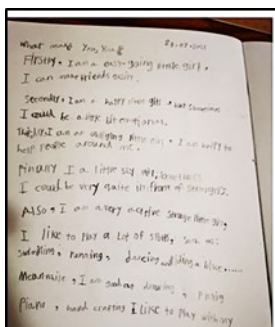 What makes You, You?
Firstly, I am a easy-going little girl.
I can make friends easily.
Secondly, I am a happy little girl, but sometimes
I could be a little bit emotional.
Thirdly, I am an obliging little girl. I am happy to
help people around me.
Finally I a little shy girl, sometimes
I could be very quite in front of strangers.
Also, I am a very active little girl,
I like to play a lot of sports, such as:
swimming, running, dancing and riding a
Meanwhile, I am good at drawing, playing
Piano, hand crafting I like to play with my